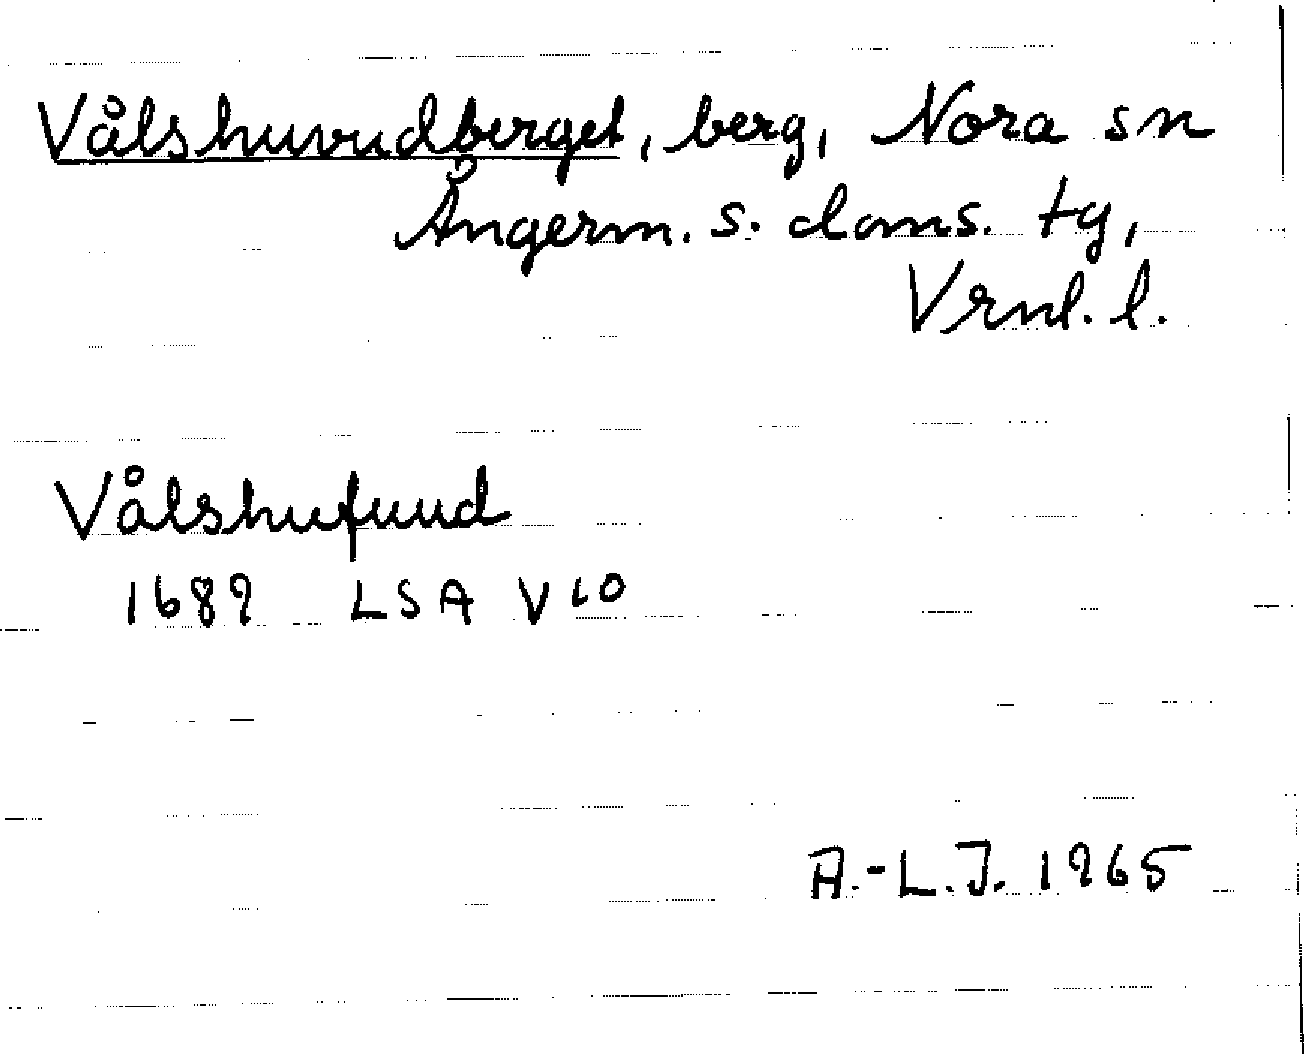 Vålshuvudberget, berg, Nora sn
Ångerm. s. doms. tg,
Vrnl. l.
Vålshufuud
1689 LSA V 10
A.-L.J. 1965